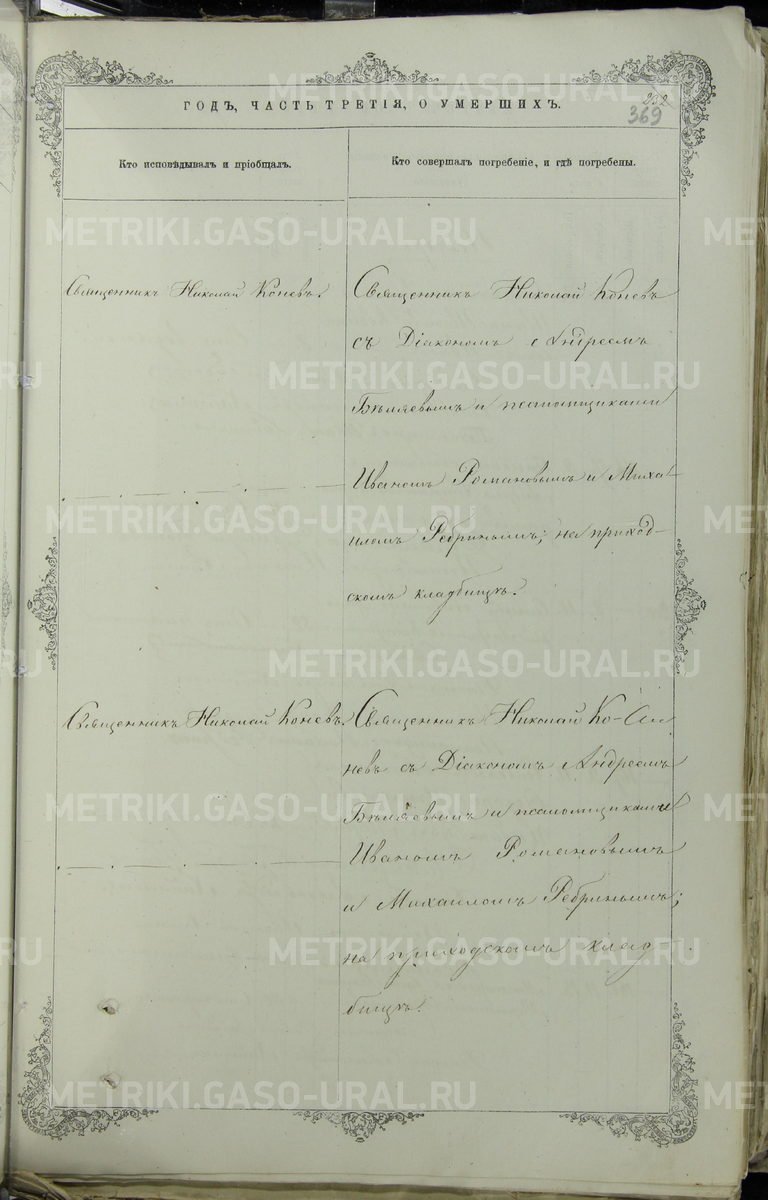 ГОДЪ, ЧАСТЬ ТРЕТІЯ, О УМЕРШИХЪ.
369
Кто исповѣдывалъ и пріобщалъ.
Кто совершалъ погребеніе, и гдѣ погребены.
Священникъ Николай Коневъ.
Священникъ Николай Коневъ
съ Діакономъ Андреемъ
Бѣляевымъ и псаломщиками
Иваномъ Романовымъ и Миха-
иломъ Ребринымъ; на приход-
скомъ кладбищѣ.
Священникъ Николай Коневъ.
Священникъ Николай Ко-
невъ съ Діакономъ Андреемъ
Бѣляевымъ и псаломщиками
Иваномъ Романовымъ
и Михаиломъ Ребринымъ;
на приходскомъ клад
бищѣ.
METRIKI.GASO-URAL.RU